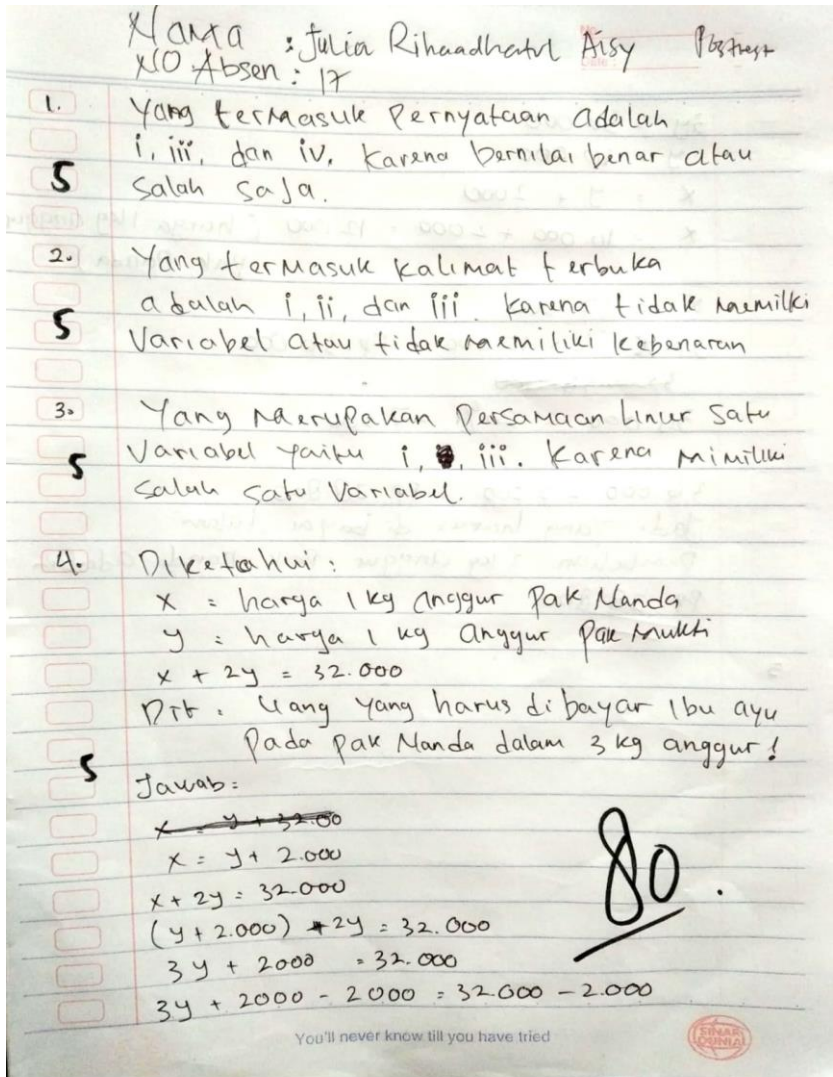 Nama : Julia Rihaadhatul Aisy Posttest
NO Absen : 17
1. Yang termasuk Pernyataan adalah
i, iii, dan iv. Karena bernilai benar atau
5 Salah saja.
2. Yang termasuk kalimat terbuka
adalah i, ii, dan iii. Karena tidak memilki
5 Variabel atau tidak memiliki kebenaran
3. Yang Merupakan Persamaan Linur Satu
5 Variabel yaitu i, iii. Karena mimiliki
Salah satu Variabel.
4. Diketahui :
x = harga 1 kg anggur Pak Manda
y = harga 1 kg anggur pak Mukti
x + 2y = 32.000
Dit : Uang yang harus dibayar Ibu ayu
Pada pak Manda dalam 3 kg anggur !
5 Jawab :
x = y + 32.00
x = y + 2.000
x + 2y = 32.000
(y + 2.000) + 2y = 32.000
3y + 2000 = 32.000
3y + 2000 - 2000 = 32.000 - 2.000
80.
You'll never know till you have tried
SINAR DUNIA